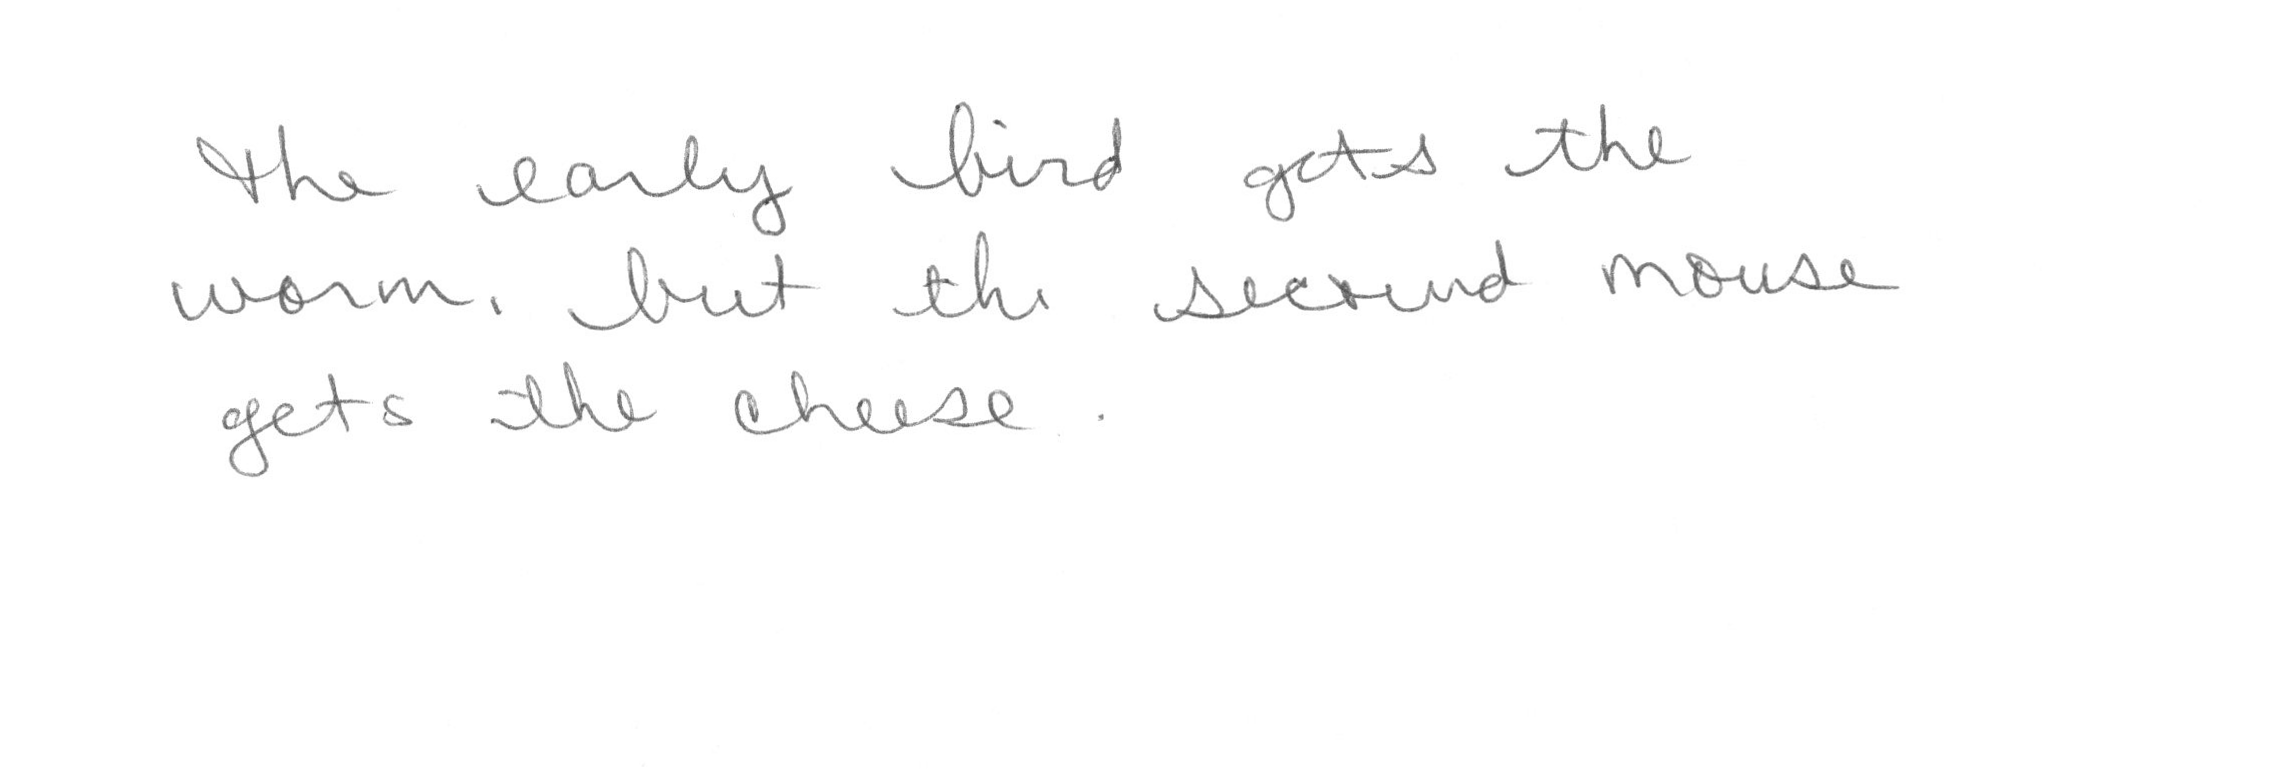 the early bird gets the
worm, but the second mouse
gets the cheese.